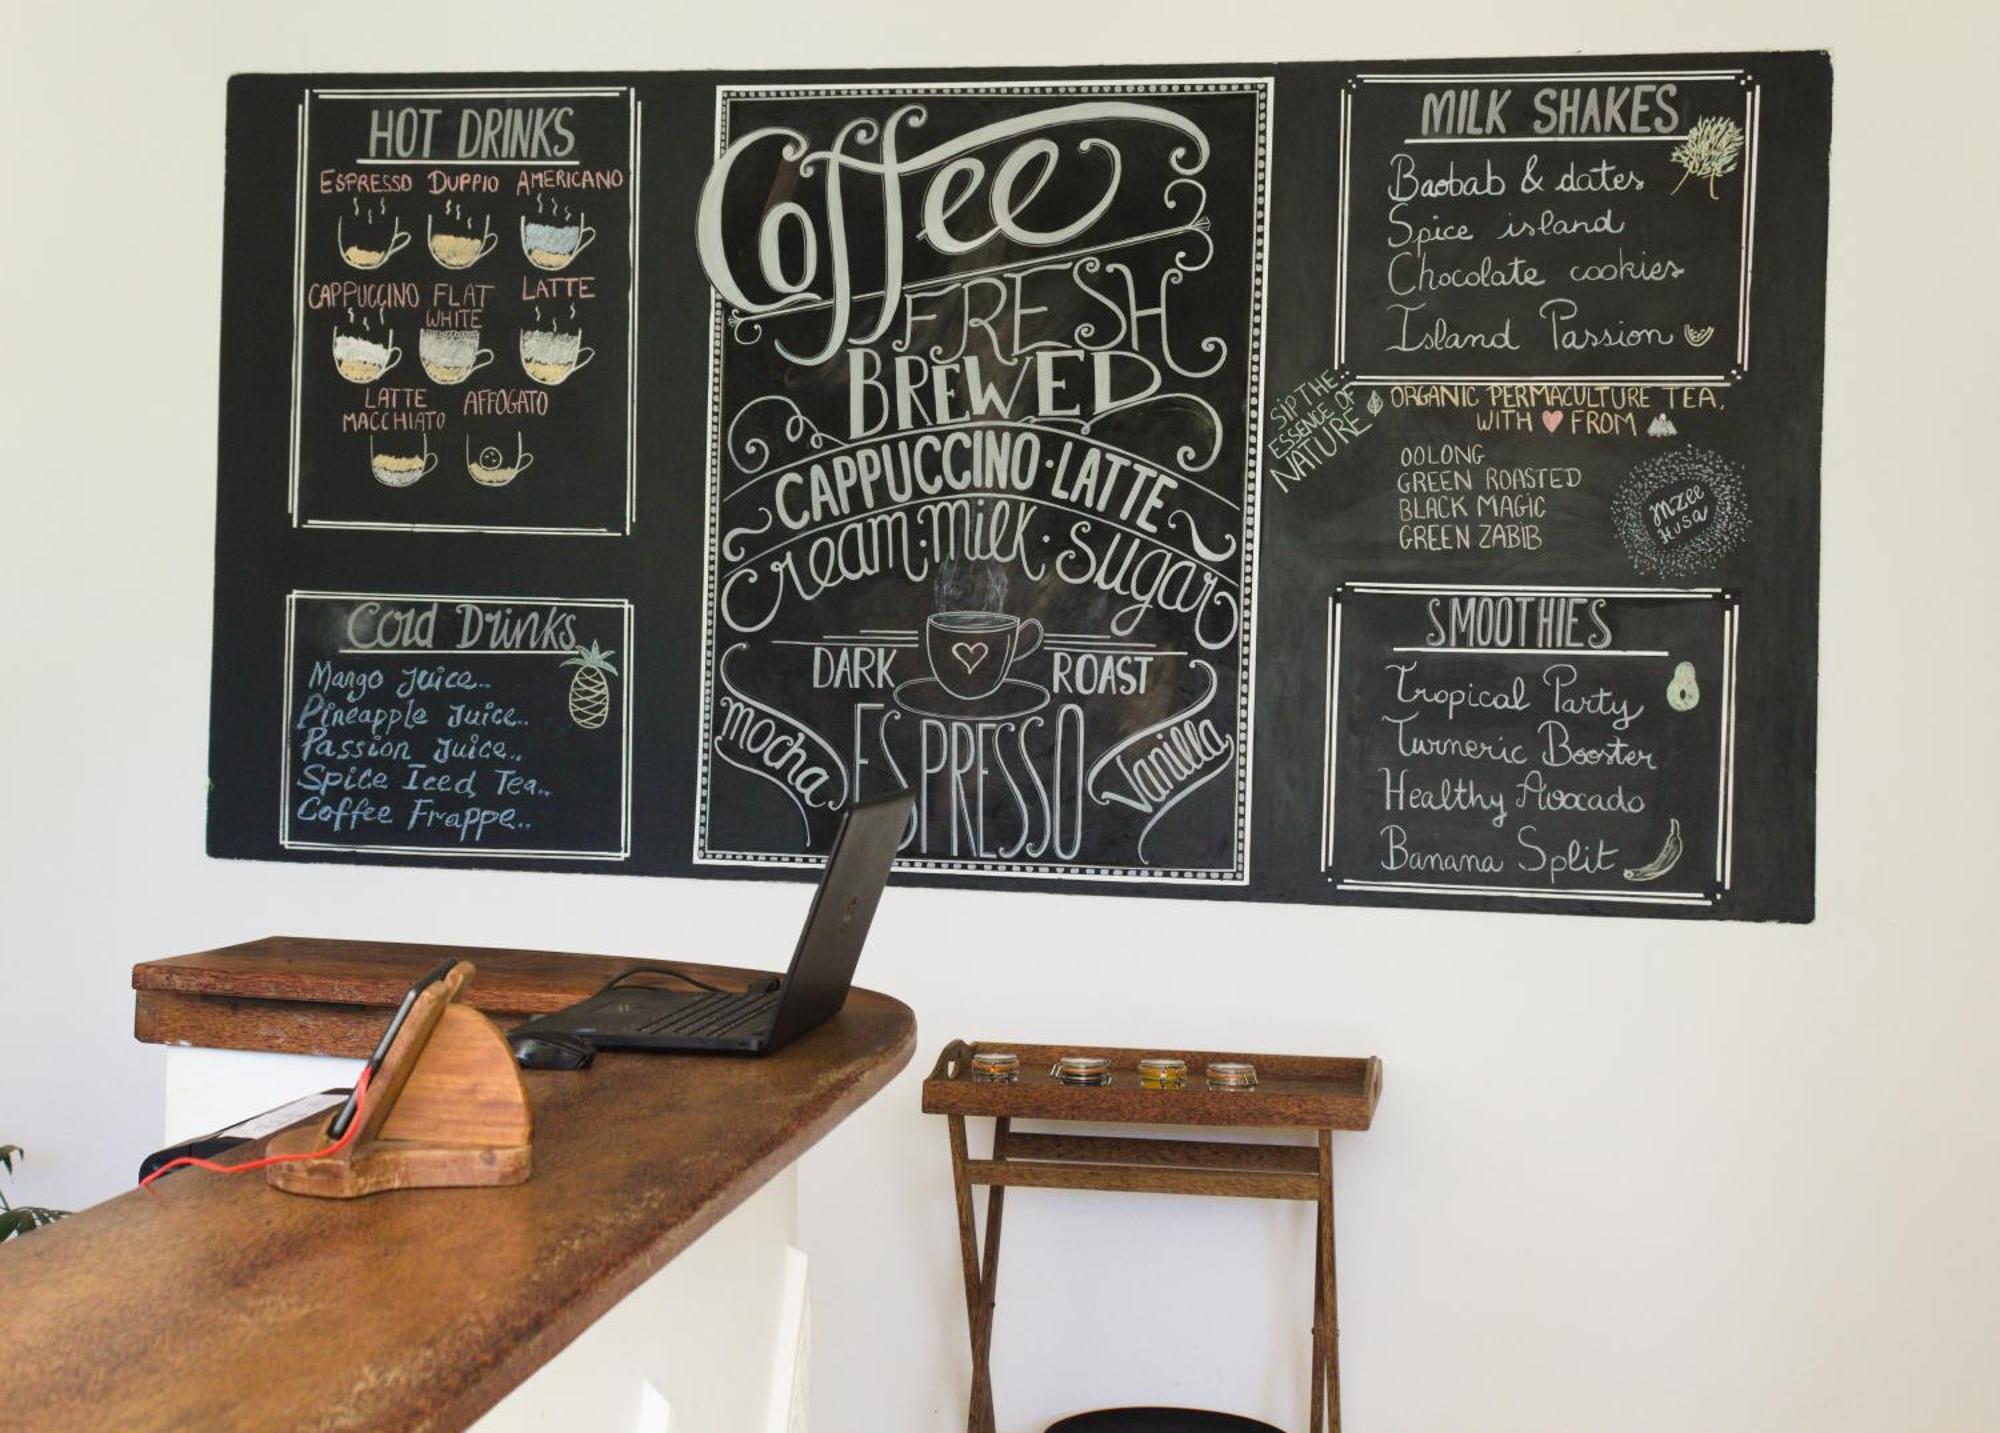 HOT DRINKS
ESPRESSO DUPPIO AMERICANO
CAPPUCCINO FLAT WHITE LATTE
LATTE MACCHIATO AFFOGATO
Cold Drinks
Mango Juice..
Pineapple Juice..
Passion Juice..
Spice Iced Tea..
Coffee Frappe..
Coffee
FRESH
BREWED
CAPPUCCINO · LATTE
cream · milk · sugar
DARK ROAST
mocha ESPRESSO Vanilla
MILK SHAKES
Baobab & dates
Spice island
Chocolate cookies
Island Passion
SIP THE
ESSENCE OF
NATURE
ORGANIC PERMACULTURE TEA,
WITH ♥ FROM
OOLONG
GREEN ROASTED
BLACK MAGIC
GREEN ZABIB
MZEE
HUSA
SMOOTHIES
Tropical Party
Turmeric Booster
Healthy Avocado
Banana Split